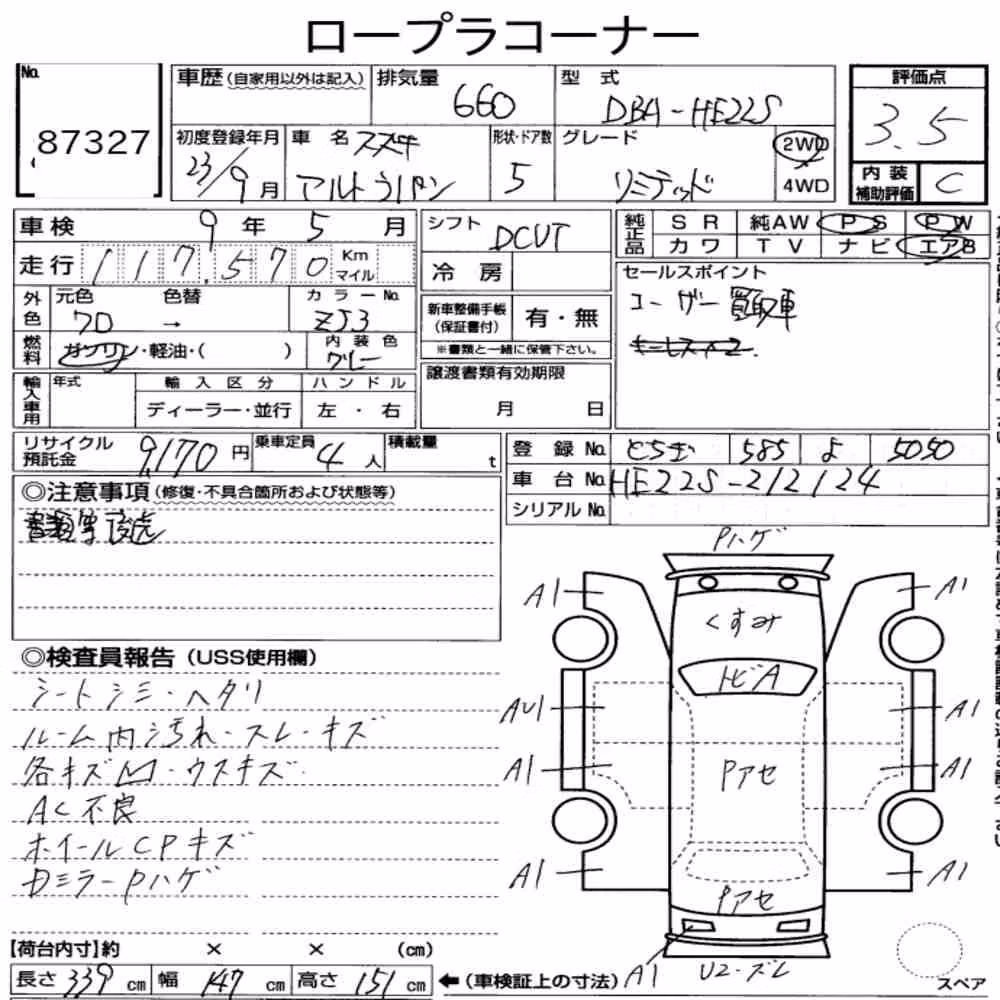 ロープラコーナー
No. 87327
車歴(自家用以外は記入) 排気量 660 型 式 DBA-HE22S
初度登録年月 23/9月 車 名 スズキ アルトラパン 形状・ドア数 5 グレード リミテッド 2WD 4WD
評価点 3.5
内装補助評価 C
車検 9 年 5 月
走行 117,570 Km マイル
外色 元色 色替 カラーNo.
→ ZJ3
燃料 ガソリン・軽油・( ) 内装色 グレー
輸入車用 年式 輸入区分 ハンドル
ディーラー・並行 左・右
シフト DCVT
冷房
新車整備手帳(保証書付) 有・無
※書類と一緒に保管下さい。
譲渡書類有効期限
月 日
純正品 SR 純AW PS PW
カワ TV ナビ エアB
セールスポイント
ユーザー買取車
リサイクル預託金 9,170 円 乗車定員 4 人 積載量 t
登 録 No. とちぎ 585 よ 5050
車 台 No. HE22S-212124
シリアル No.
◎注意事項(修復・不具合箇所および状態等)
◎検査員報告(USS使用欄)
シートシミ・ヘタリ
ルーム内汚れ・スレ・キズ
各キズ凹・ウスキズ
AC不良
ホイールCPキズ
DミラーPハゲ
【荷台内寸】約 × × (cm)
長さ 339 cm 幅 147 cm 高さ 151 cm ←(車検証上の寸法)
Pハゲ
A1 A1
くすみ
トビA
AU1 A1
A1 Pアセ A1
A1 A1
Pアセ
A1 U2・ズレ
スペア